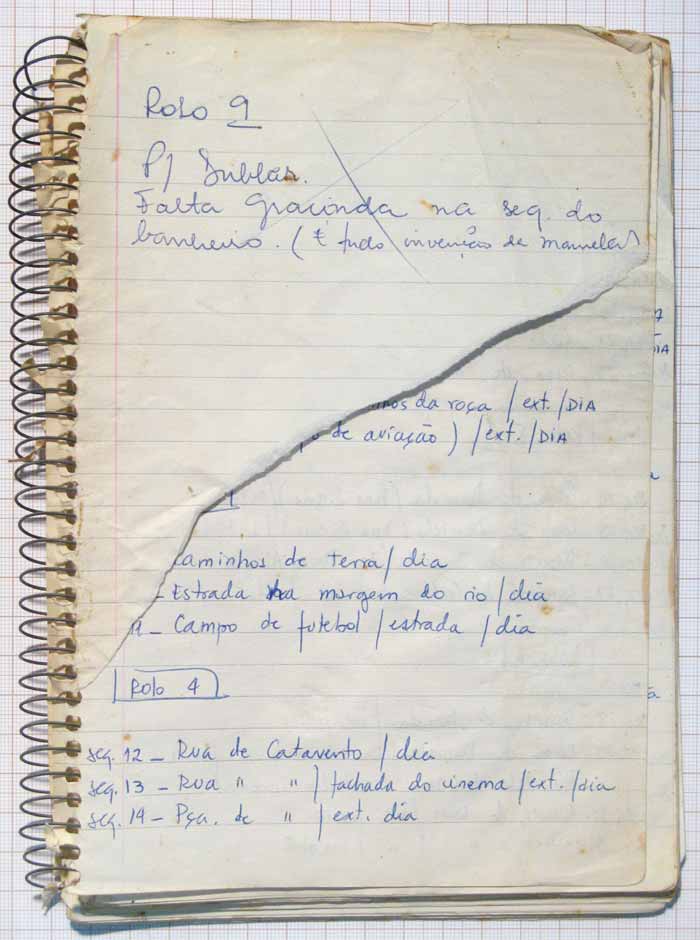 Rolo 9
P/ Dublar.
Falta Gracinda na seq. do
banheiro. (É tudo invenção de Manuela)
DIA
nos da roça / ext. / DIA
o de aviação ) / ext. / DIA
caminhos de terra / dia
- Estrada na margem do rio / dia
- Campo de futebol / estrada / dia
Rolo 4
seq. 12 - Rua de Catavento / dia
seq. 13 - Rua " " ) fachada do cinema / ext. / dia
seq. 14 - Pça. de " / ext. dia